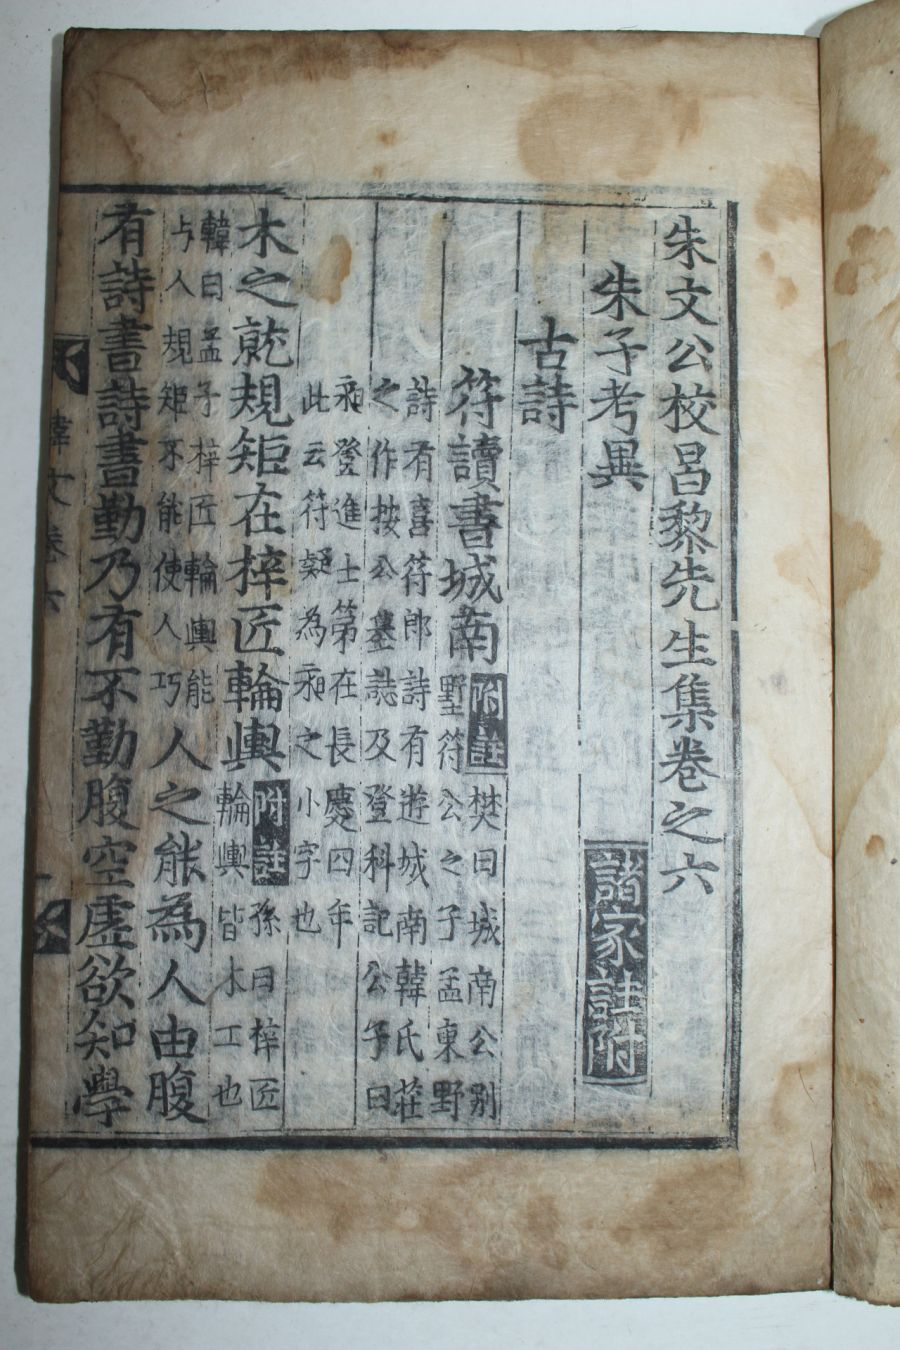 朱文公校昌黎先生集卷之六
朱子考異 諸家註附
古詩
符讀書城南 附註 樊曰城南公别
墅符公之子孟東野
詩有喜符郎詩有遊城南韓氏莊
之作按公墓誌及登科記公子曰
昶登進士第在長慶四年
此云符疑為昶之小字也
木之就規矩在梓匠輪輿 附註 孫曰梓匠
輪輿皆木工也
韓曰孟子梓匠輪輿能
与人規矩不能使人巧 人之能為人由腹
有詩書詩書勤乃有不勤腹空虛欲知學
韓文卷六